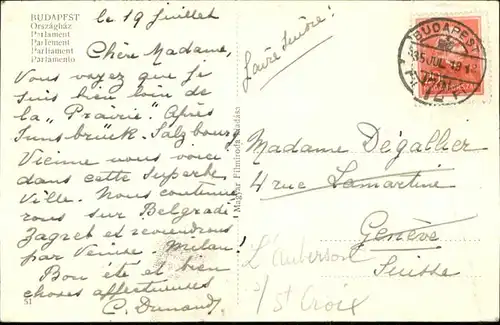 BUDAPEST
Országház
Parlament
Parlement
Parliament
Parlamento
le 19 juillet
Chère Madame,
Vous voyez que je
suis bien loin de
la „Prairie". Après
Innsbrück, Salzbour
Vienne nous voici
dans cette superbe
Ville. Nous continue
rons sur Belgrade
Zagreb et reviendrons
par Venise. Milan!
Bon été et bien
choses affectueuses
C. Dunand
51
Magyar Filmiroda kiadása
BUDAPEST
Madame Dégallier
4 rue Lamartine
Genève
Suisse
L'Auberson
s/ St Croix